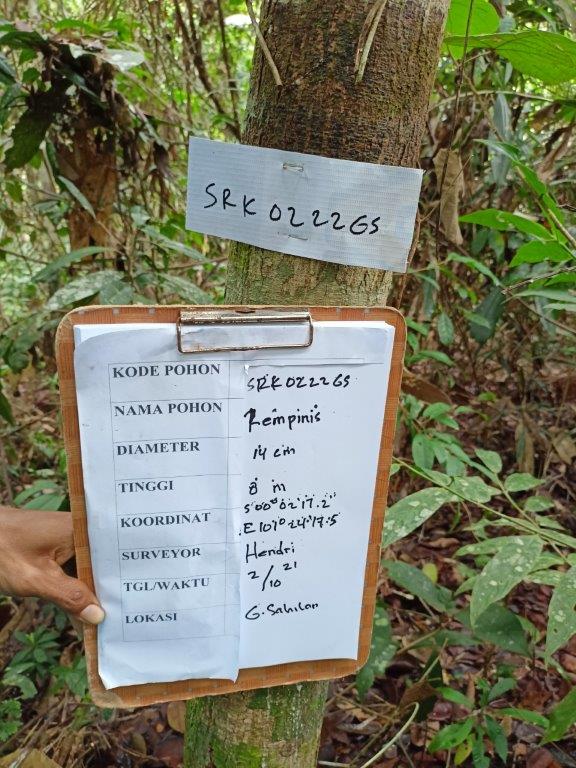 SRK 0222GS
KODE POHON SRK 0222GS
NAMA POHON Rempinis
DIAMETER 14 cm
TINGGI 8 m
KOORDINAT S 00°02'17.2"
E 101°24'17.5
SURVEYOR Hendri
TGL/WAKTU 2/10 21
LOKASI G. Sahilan